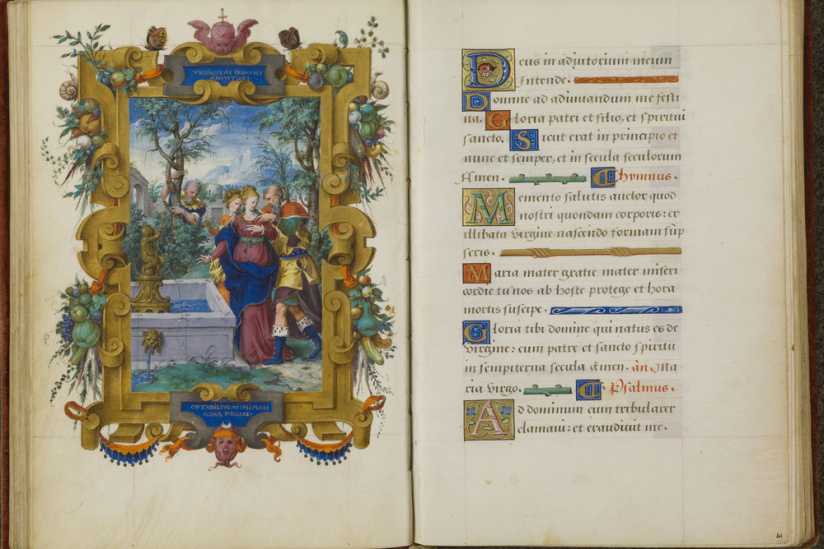 ANGVSTIAE
OPTABILIVS MIHI MORI
QVAM PECCARE
Deus in adjutorium meum
Intende.
Domine ad adiuuandum me festi
na. Gloria patri et filio, et spiritui
sancto. Sicut erat in principio et
nunc et semper, et in secula seculorum
Amen. Hymnus.
Memento salutis auctor quod
nostri quondam corporis: ex
illibata virgine nascendo formam sup
seris.
Maria mater gratie mater miseri
cordie tu nos ab hoste protege et hora
mortis suscipe.
Gloria tibi domine qui natus es de
virgine: cum patre et sancto spiritu
in sempiterna secula Amen. an. Ma
ria virgo. Psalmus.
Ad dominum cum tribularer
clamaui: et exaudiuit me.